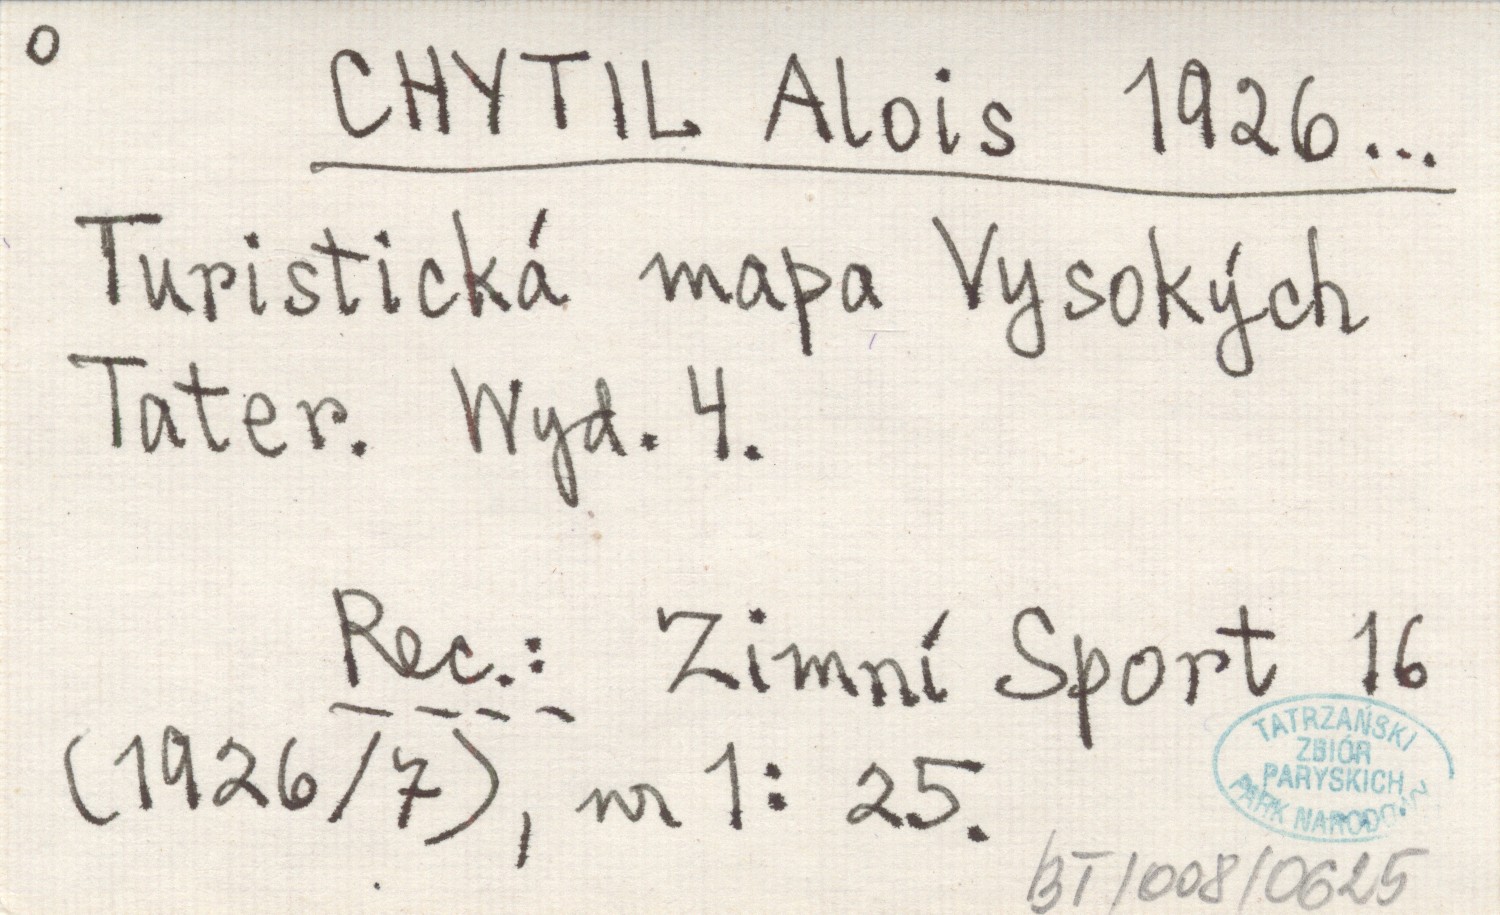 o
CHYTIL Alois 1926...
Turistická mapa Vysokých
Tater. Wyd. 4.
Rec.: Zimní Sport 16
(1926/7), nr 1: 25.
TATRZAŃSKI
ZBIÓR
PARYSKICH
PARK NARODOWY
BT/008/0625